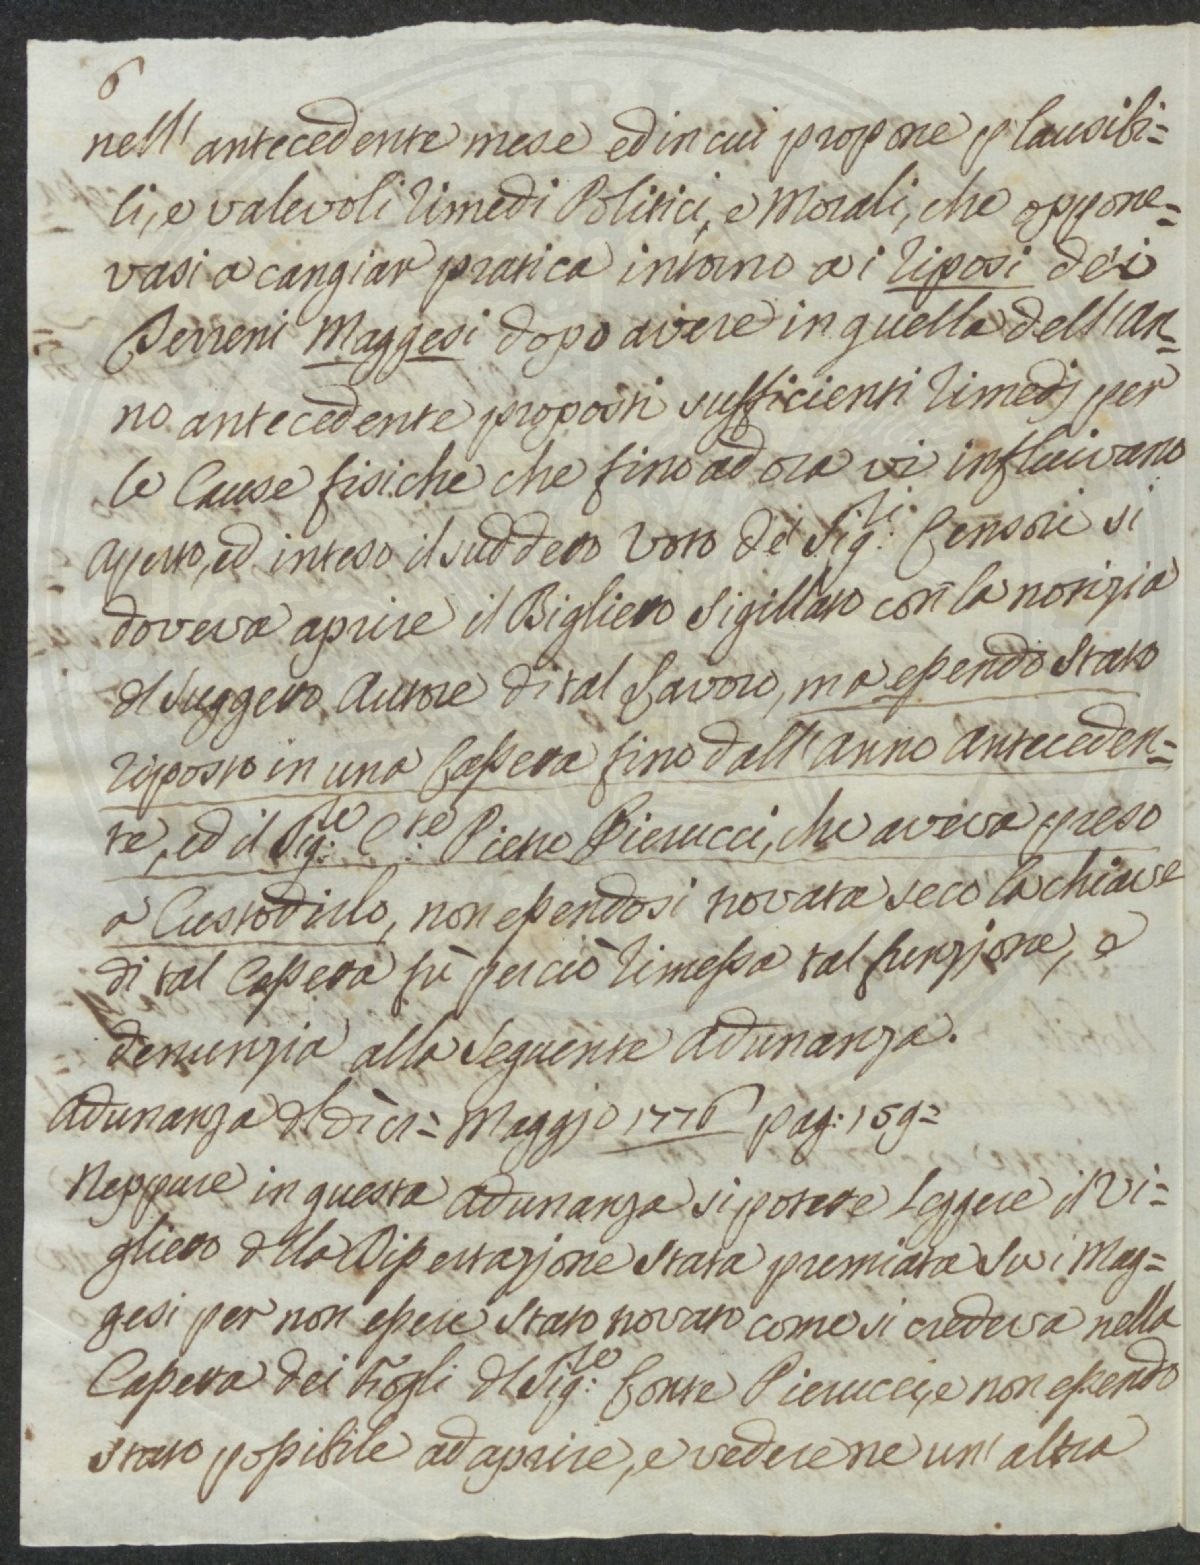 6
nell' antecedente mese ed in cui propone plausibi=
li, e valevoli rimedi Politici, e Morali, che oppone=
vasi a cangiar pratica intorno ai riposi dei
Terreni Maggesi dopo avere in quella dell' An=
no antecedente proposti sufficienti rimedj per
le Cause fisiche che fino ad ora vi influivano
aperto, ed inteso il suddetto Voto de' Sig:ri Censori si
doveva aprire il Biglietto Sigillato con la notizia
del Suggetto Autore di tal Lavoro, ma essendo Stato
riposto in una Cassetta fino dall' Anno Anteceden=
te, ed il Sig:re C:te Pietro Pierucci, che aveva preso
a Custodirlo, non essendosi trovata seco la chiave
di tal Cassetta fù perciò rimessa tal funzione, e
denunzia alla Seguente Adunanza.
Adunanza del dì Maggio 1776 pag: 159=
Neppure in questa Adunanza si potette Leggere il Vi=
glietto della Dissertazione Stata premiata Su i Mag=
gesi per non essere Stato trovato come si credeva nella
Cassetta dei Fogli del Sig:re Conte Pierucci, e non essendo
Stato possibile ad aprire, e vedere ne un' altra